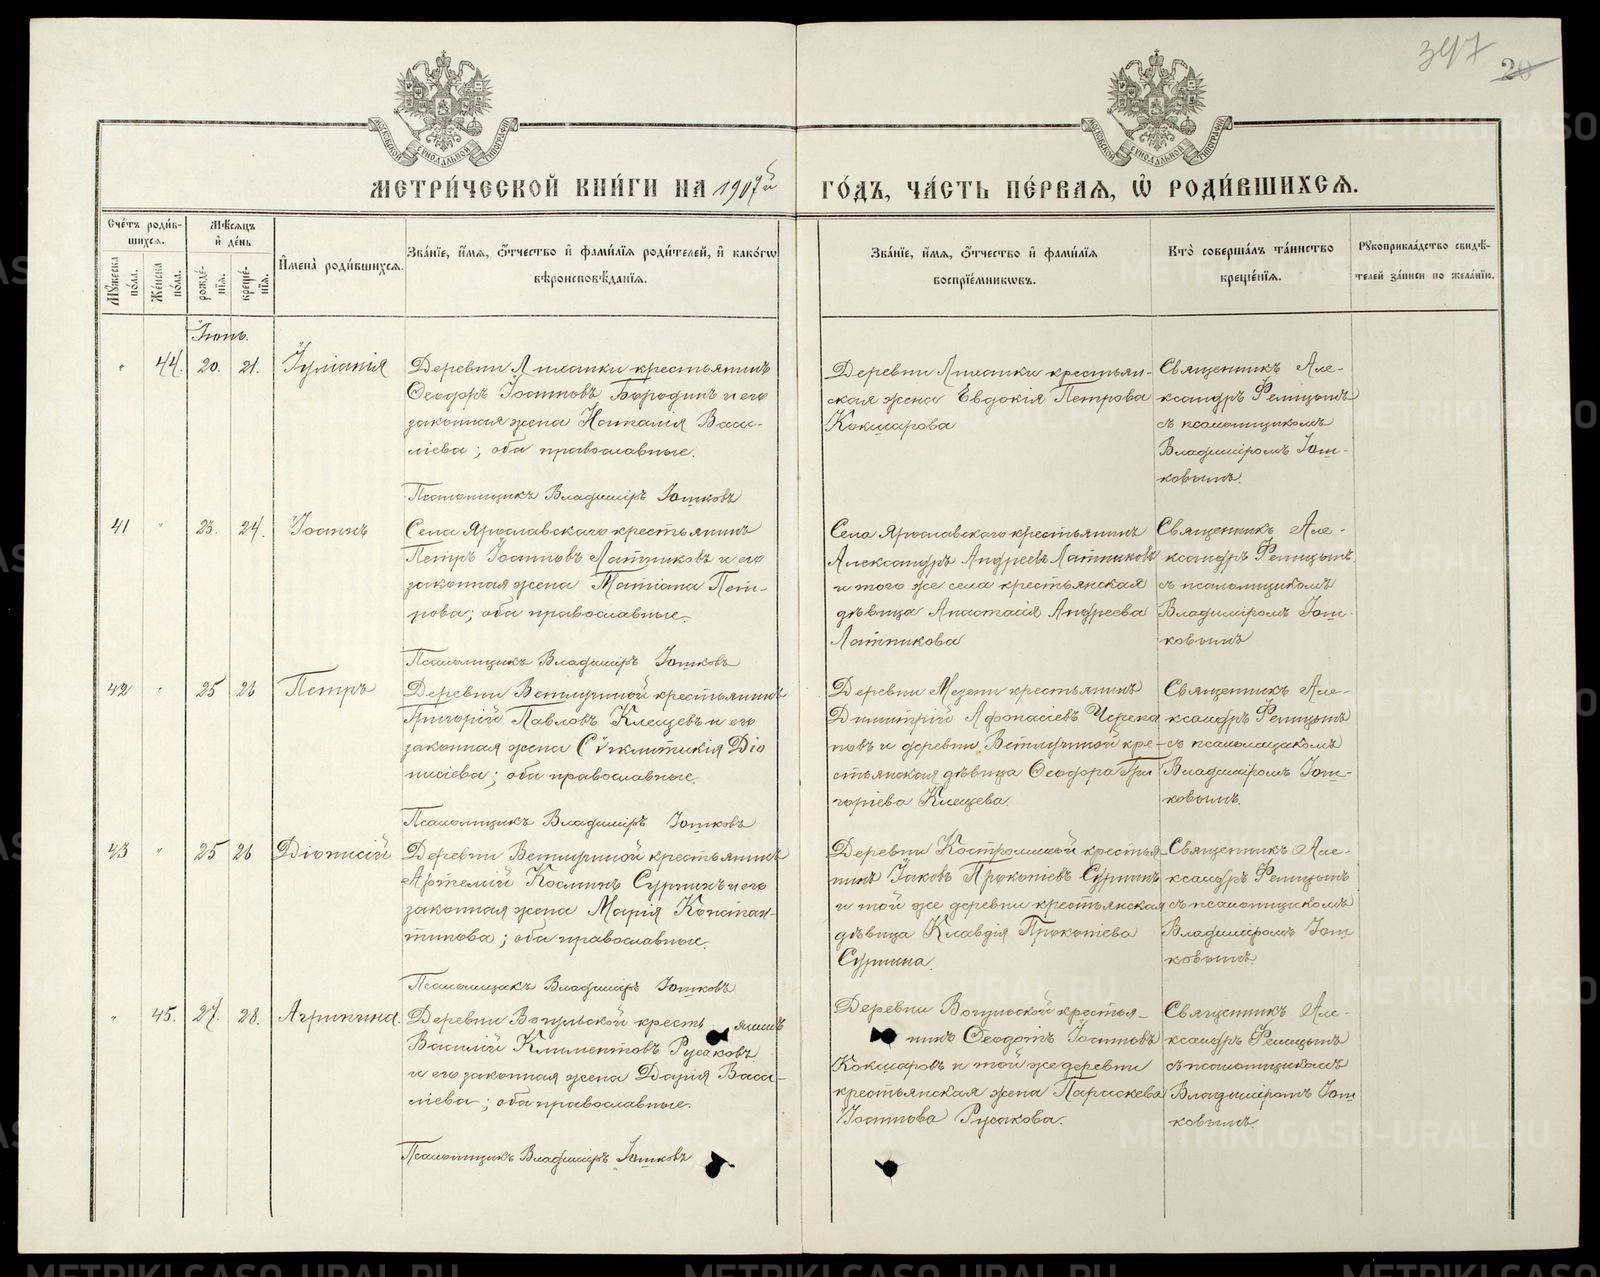 347
20
МОСКОВСКОЙ СѴНОДАЛЬНОЙ ТИПОГРАФІИ
МОСКОВСКОЙ СѴНОДАЛЬНОЙ ТИПОГРАФІИ
МЕТРИ́ЧЕСКОЙ КНИ́ГИ НА 1907й ГО́ДЪ, ЧА́СТЬ ПЕ́РВАЯ, Ѡ҆ РОДИ́ВШИХСЯ.
Сче́тъ роди́в-
шихся.
Мꙋ́жеска по́ла.
Же́нска по́ла.
Мѣ́сяцъ
и҆ де́нь
рожде́-
нїя.
креще́-
нїя.
И҆мена̀ роди́вшихся.
Зва́нїе, и҆́мя, ѻ҆́тчество и҆ фами́лїя роди́телей, и҆ како́гѡ
вѣроисповѣ́данїя.
Зва́нїе, и҆́мя, ѻ҆́тчество и҆ фами́лїя
воспрїе́мникѡвъ.
Кто̀ соверша́лъ та́инство
креще́нїя.
Рꙋкоприкла́дство свидѣ́-
телей за́писи по жела́нїю.
Іюнь.
" 44. 20. 21. Іуліанія
Деревни Липатки крестьянинъ
Ѳеодоръ Іоанновъ Бородинъ и его
законная жена Наталія Васи-
ліева; оба православные.
Псаломщикъ Владиміръ Іошковъ
Деревни Липатки крестьян-
ская жена Евдокія Петрова
Кокшарова
Священникъ Але-
ксандръ Фелицынъ
съ псаломщикомъ
Владиміромъ Іош-
ковымъ.
41 " 23. 24. Іоаннъ
Села Ярославскаго крестьянинъ
Петръ Іоанновъ Латниковъ и его
законная жена Татіана Пет-
рова; оба православные.
Псаломщикъ Владиміръ Іошковъ
Села Ярославскаго крестьянинъ
Александръ Андреевъ Латниковъ
и того же села крестьянская
дѣвица Анастасія Андреева
Латникова
Священникъ Але-
ксандръ Фелицынъ
съ псаломщикомъ
Владиміромъ Іош-
ковымъ
42 " 25 26 Петръ
Деревни Ветлугиной крестьянинъ
Григорій Павловъ Клещевъ и его
законная жена Сѵнклитикія Діо
нисіева; оба православные.
Псаломщикъ Владиміръ Іошковъ
Деревни Мезени крестьянинъ
Димитрій Аѳонасіевъ Черепа
новъ и деревни Ветлугиной кре-
стьянская дѣвица Ѳеодора Гри
горіева Клещева.
Священникъ Але-
ксандръ Фелицынъ
съ псаломщикомъ
Владиміромъ Іош-
ковымъ.
43 " 25 26 Діонисій
Деревни Ветлугиной крестьянинъ
Артемій Косминъ Суринъ и его
законная жена Марія Констан-
тинова; оба православные.
Псаломщикъ Владиміръ Іошковъ
Деревни Костроминой крестья-
нинъ Іаковъ Прокопіевъ Суринъ
и той же деревни крестьянская
дѣвица Клавдія Прокопіева
Сурина.
Священникъ Але-
ксандръ Фелицынъ
съ псаломщикомъ
Владиміромъ Іош
ковымъ.
" 45. 27. 28. Агрипина.
Деревни Вогульской крестьянинъ
Василій Климентовъ Русаковъ
и его законная жена Дарія Васи-
ліева; оба православные.
Псаломщикъ Владиміръ Іошковъ
Деревни Вогульской крестья-
нинъ Ѳеодотъ Іоанновъ
Кокшаровъ и той же деревни
крестьянская жена Параскева
Іоаннова Русакова.
Священникъ Але-
ксандръ Фелицынъ
съ псаломщикомъ
Владиміромъ Іош
ковымъ.
METRIKI.GASO-URAL.RU